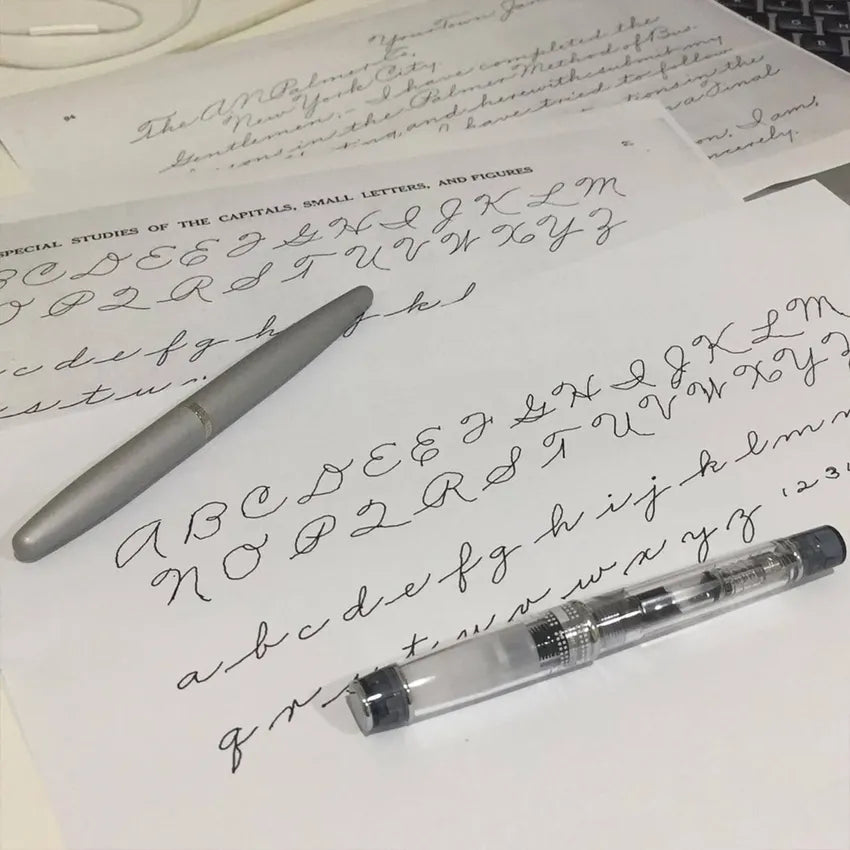 Your Town Jan
The A N Palmer Co.
New York City.
Gentlemen:- I have completed the
in the Palmer Method of Bus.
and herewith submit my
I have tried to follow
in the
a Final
I am,
SPECIAL STUDIES OF THE CAPITALS, SMALL LETTERS, AND FIGURES
B C D E E F G H I J K L M
O P Q R S T U V W X Y Z
c d e f g h j k l
s t u
A B C D E E F G H I J K L M
N O P Q R S T U V W X Y Z
a b c d e f g h i j k l m n
q r s t u v w x y z 1 2 3